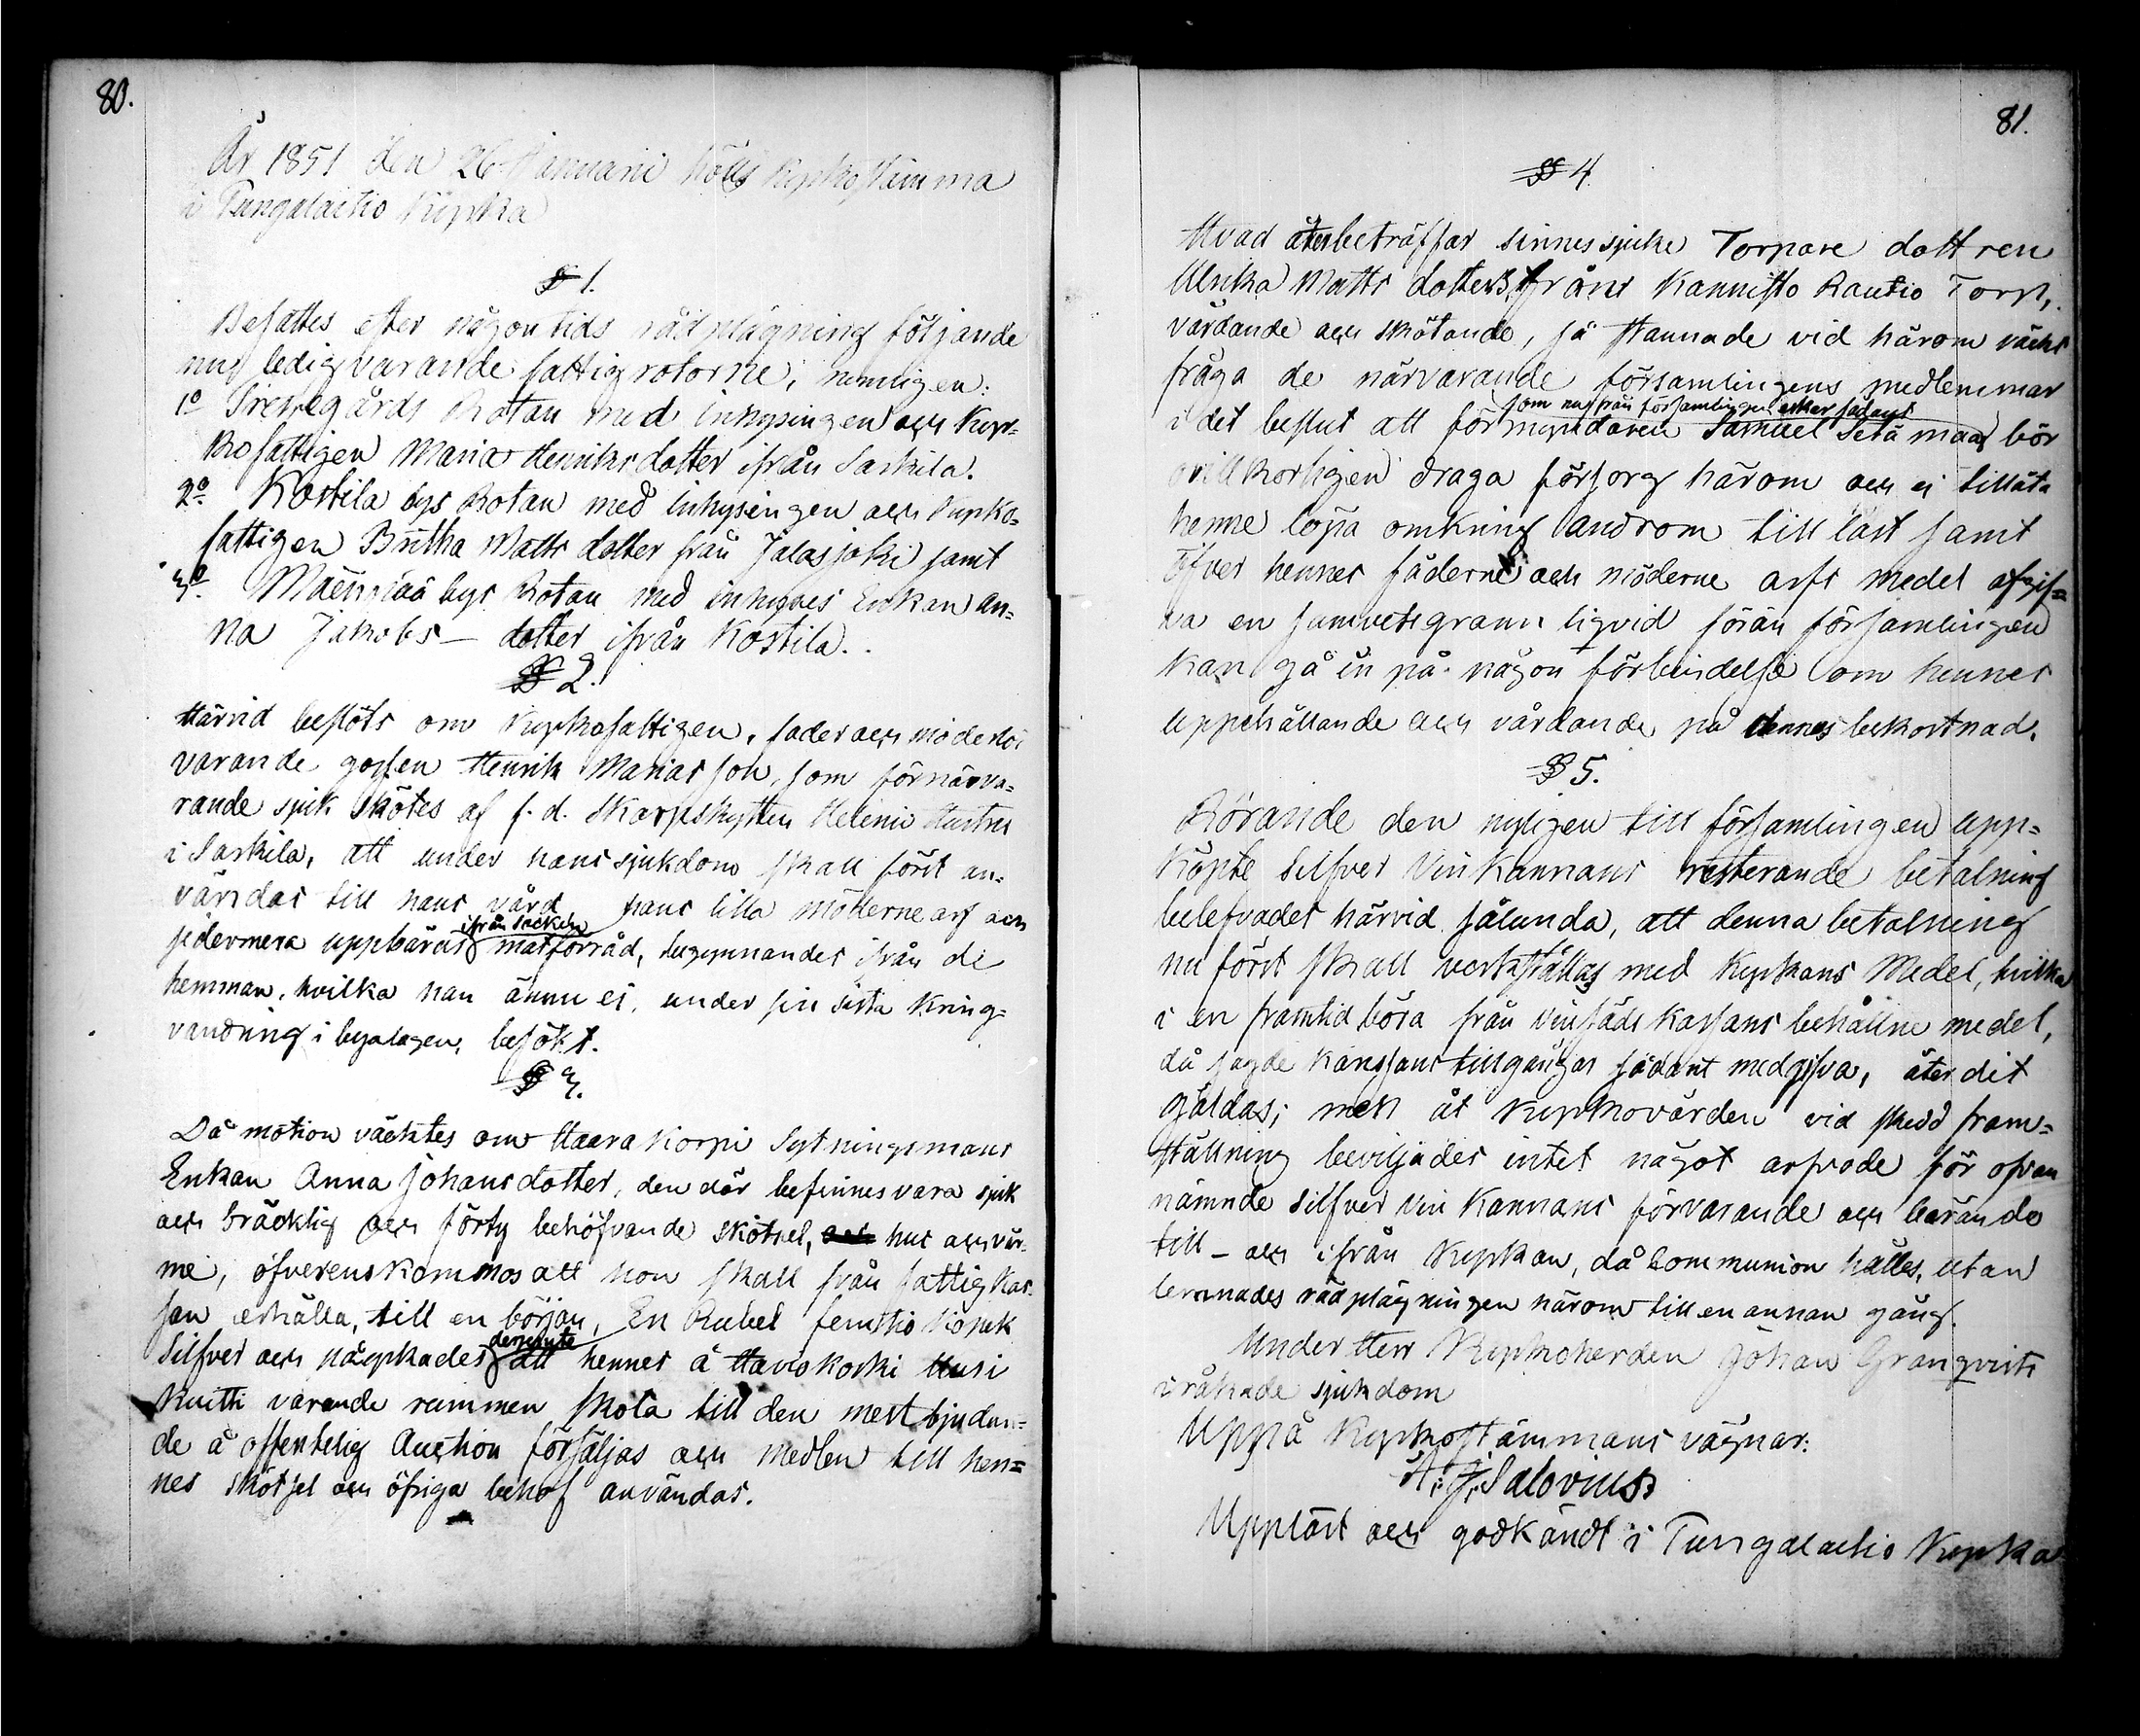 80.
År 1851 den 26 Januarii hölls Kyrkostämma
i Pungalaitio Kyrka
§ 1.
Besattes efter någon tids rådplägning följande
nu ledig varande fattigrotorne, nemligen:
1o Prestegårds Rotan med inhysingen och Kyr-
kofattigen Maria Henriksdotter ifrån Sarkila.
2o Kostila bys Rotan med inhysingen och Kyrko-
fattigen Britha Matts dotter från Jalasjoki samt
3o Mäenpää bys Rotan med inhyses Enkan An-
na Jakobs - dotter ifrån Kostila.
§ 2.
Härvid beslöts om Kyrkofattigen, fader och moderlös
varande gossen Henrik Mariasson, som förnärva-
rande sjuk skötes af f.d. Skarpskytten Helenii Hustru
i Sarkila, att under hans sjukdom skall först an-
vändas till hans vård hans lilla möderne arf och
ifrån Socken
sedermera uppbäras matförråd, begynnandes ifrån de
hemman, hvilka han ännu ej, under sin sista kring-
vandring i byalagen, besökt.
§ 3.
Då motion väcktes om Haarakorpi Sytningsmans
Enkan Anna Johansdotter, den där befinnes vara sjuk
och bräcklig och förty behöfvande skötsel, och hus och vär-
me, öfverenskommos att hon skall från fattigkas-
san erhålla, till en början, En Rubel femtio Kopek
dessutom
Silfver och påyrkades att hennes å Haviokoski Uusi
Knitti varande rummen skola till den mest bjudan-
de å offentelig Auction försäljas och medlen till hen-
nes skötsel och öfriga behof användas.
81.
§ 4.
Hvad återbeträffar sinnessjuke Torpare dottren
Ulrika Matts dotters, från Kannisto Rautio Torp,
vårdande och skötande, så stannade vid härom väckt
fråga de närvarande församlingens medlemmar
som nu från församlingen erhar sådant
i det beslut att förmyndaren Samuel Setämaa bör
ovillkorligen draga försorg härom och ej tillåta
henne löpa omkring androm till last samt
öfver hennes fäderne och möderne arfs medel afgif-
va en samvetsgrann liqvid förän församlingen
kan gå in på någon förbindelse om hennes
uppehållande och vårdande på dennes bekostnad.
§ 5.
Rörande den nyligen till församlingen upp-
köpte Silfver Vin Kannans resterande betalning
belefvades härvid sålunda, att denna betalning
nu först skall verkställas med Kyrkans Medel, hvilka
i en framtid böra från Vinsäds Kassans behållne medel,
då sagde Kassans tillgångar sådant medgifva, åter dit
gäldas; men åt Kyrkovärden vid skedd fram-
ställning beviljades intet något arfvode för ofvan
nämnde Silfver Vin Kannans förvarande och bärande
till - och ifrån Kyrkan, då Communion hålles, utan
lemnades rådplägningen härom till en annan gång.
Under Herr Kyrkoherden Johan Granqvists
iråkade sjukdom
Uppå Kyrkostämmans vägnar:
A. J. Salovius
Uppläst och godkändt i Pungalaitio Kyrka